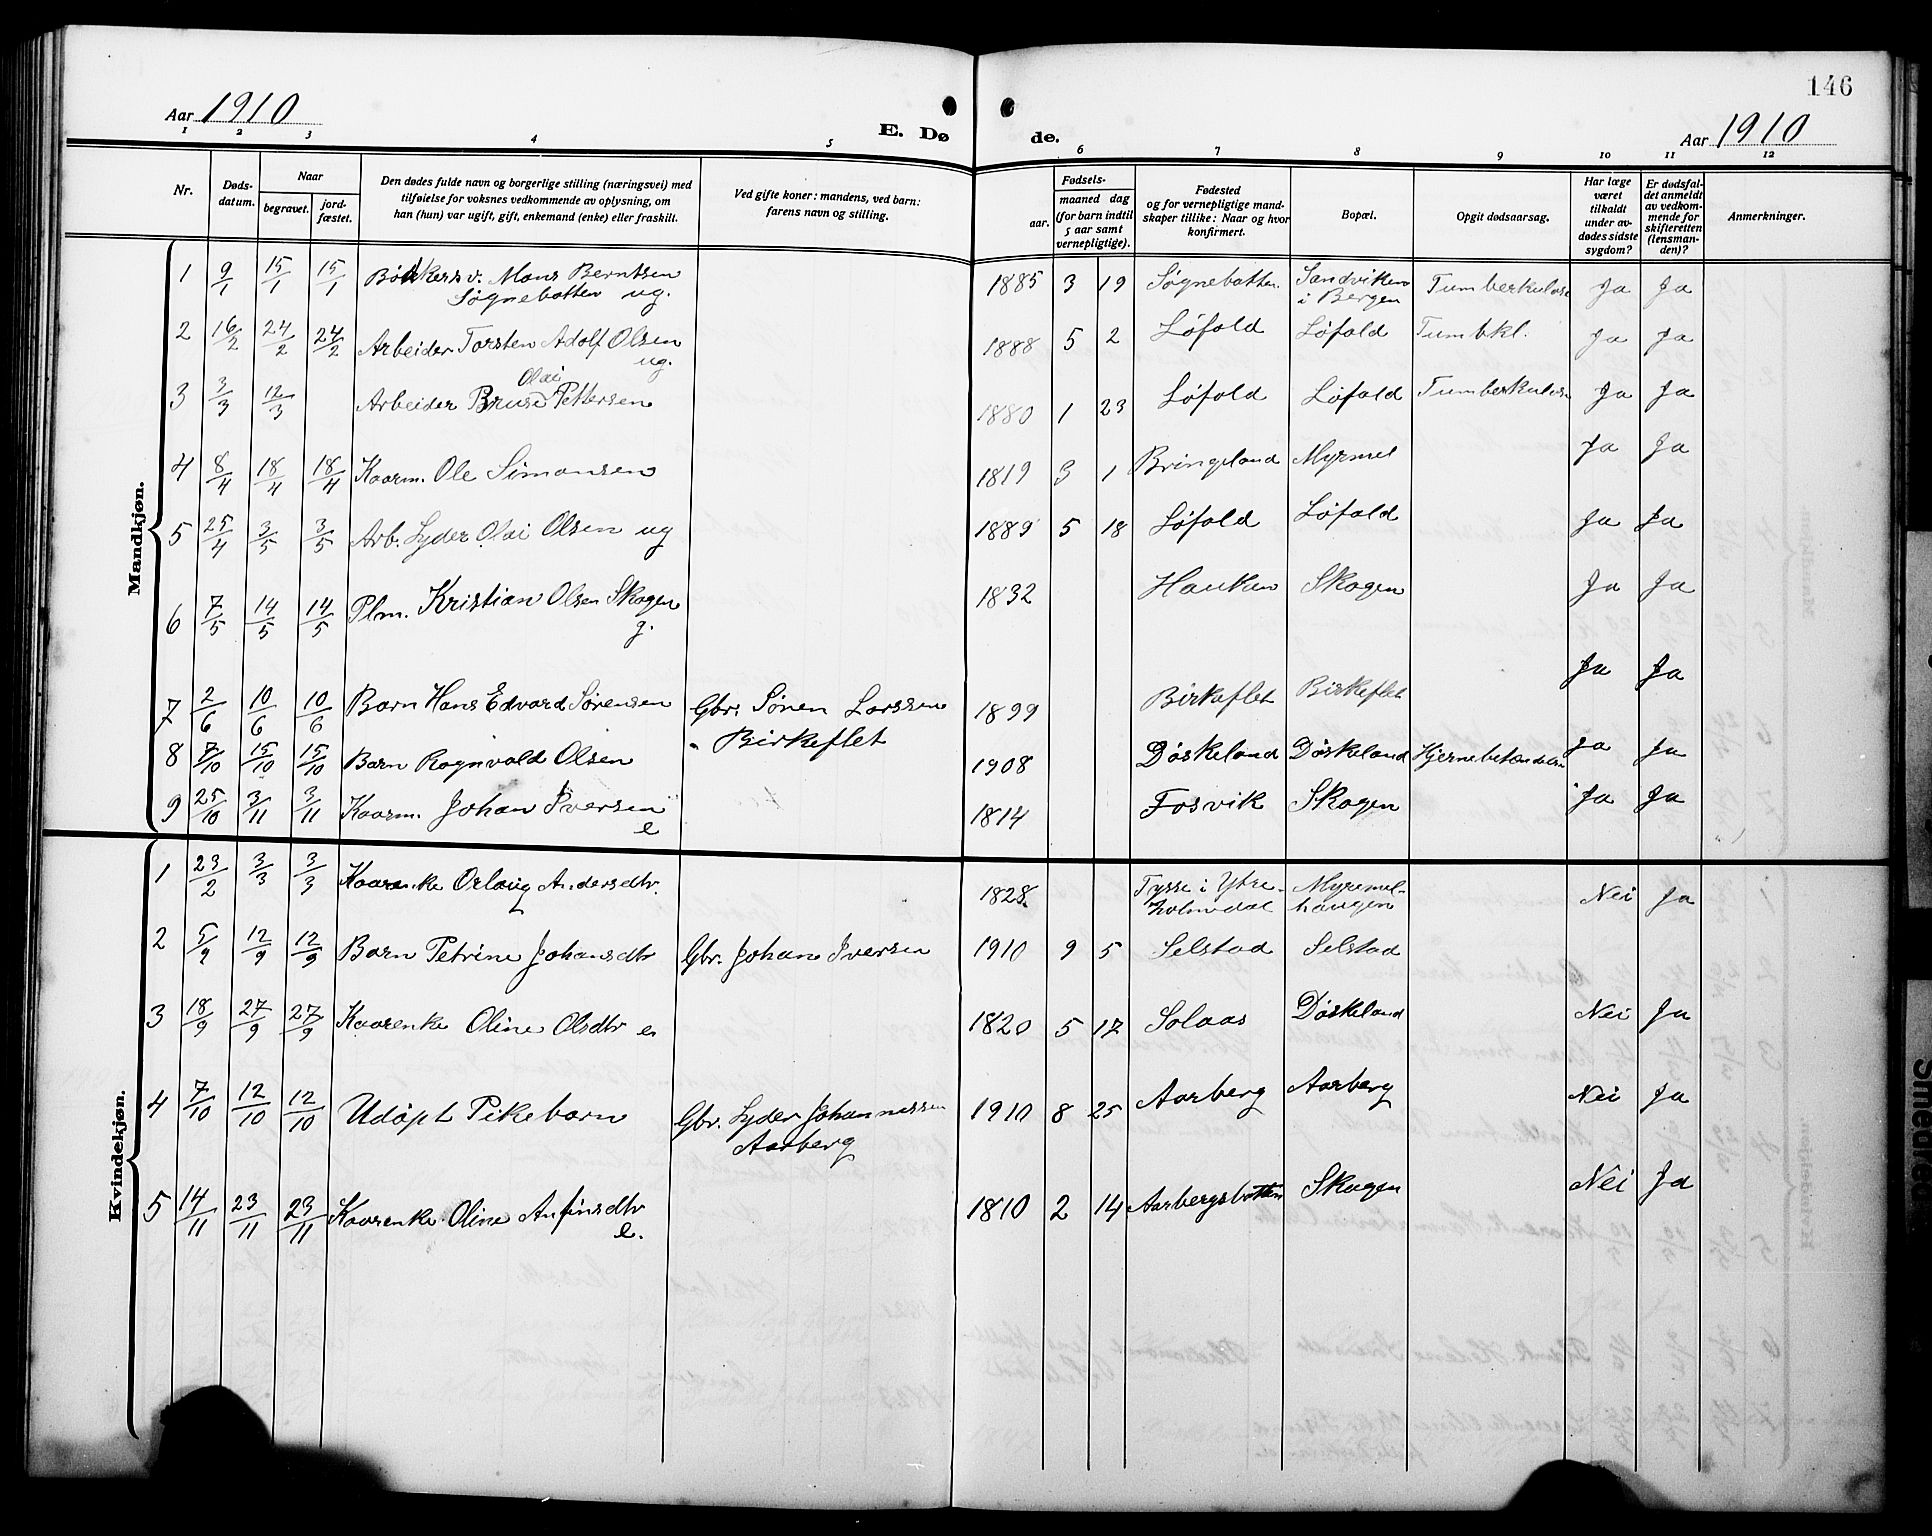 146
Aar 1910
E. Dø de.
Aar 1910
1 2 3 4 5 6 7 8 9 10 11 12
Nr.
Døds-datum.
Naar
begravet.
jord-fæstet.
Den dødes fulde navn og borgerlige stilling (næringsvei) med
tilføielse for voksnes vedkommende av oplysning, om
han (hun) var ugift, gift, enkemand (enke) eller fraskilt.
Ved gifte koner: mandens, ved barn:
farens navn og stilling.
Fødsels-
aar.
maaned dag
(for barn indtil
5 aar samt
vernepligtige).
Fødested
og for vernepligtige mand-
skaper tillike: Naar og hvor
konfirmert.
Bopæl.
Opgit dødsaarsag.
Har læge
været
tilkaldt
under av-
dødes sidste
sygdom?
Er dødsfal-
det anmeldt
av vedkom-
mende for
skifteretten
(lensman-
den)?
Anmerkninger.
Mandkjøn.
1 9/1 15/1 15/1 Bødkersv. Mons Berntsen 1885 3 19 Søgnebotten Sandviken Tumberkulose Ja Ja
Søgnebotten ug. i Bergen
2 16/2 24/2 24/2 Arbeider Torsten Adolf Olsen 1888 5 2 Løfold Løfold Tumbkl. Ja Ja
ug.
Olai
3 3/3 12/3 Arbeider Bruse Pettersen 1880 1 23 Løfold Løfold Tumberkulose Ja Ja
4 8/4 18/4 18/4 Kaarm. Ole Simonsen 1819 3 1 Bringeland Myrmel Ja Ja
5 25/4 3/5 3/5 Arb. Lyder Olai Olsen ug 1889 5 18 Løfold Løfold Ja Ja
6 7/5 14/5 14/5 Plm. Kristian Olsen Skogen 1832 Hauken Skogen Ja Ja
g.
7 2/6 10/6 10/6 Barn Hans Edvard Sørensen Gbr. Søren Larssen 1899 Birkeflet Birkeflet Ja Ja
" Birkeflet
8 7/10 15/10 15/10 Barn Ragnvald Olsen 1908 Døskeland Døskeland Hjernebetændelse Ja Ja
9 25/10 3/11 3/11 Kaarm. Johan Iversen 1814 Fosvik Skogen Ja Ja
e
Kvindekjøn.
1 23/2 3/3 3/3 Kaarenke Orlaug Andersdtr. 1828. Tysse i Ytre- Myremel- Nei Ja
holmedal haugen
2 5/9 12/9 12/9 Barn Petrine Johansdtr Gbr. Johan Iversen 1910 9 5 Selstad Selstad
3 18/9 27/9 27/9 Kaarenke Oline Olsdtr e 1820 5 17 Solaas Døskeland Nei Ja
4 7/10 12/10 12/10 Udøpt Pikebarn Gbr. Lyder Johannessen 1910 8 25 Aarberg Aarberg Nei Ja
Aarberg
5 14/11 23/11 23/11 Kaarenke Oline Anfinsdtr 1810 2 14 Aarbergsbotten Skogen Nei Ja
e.